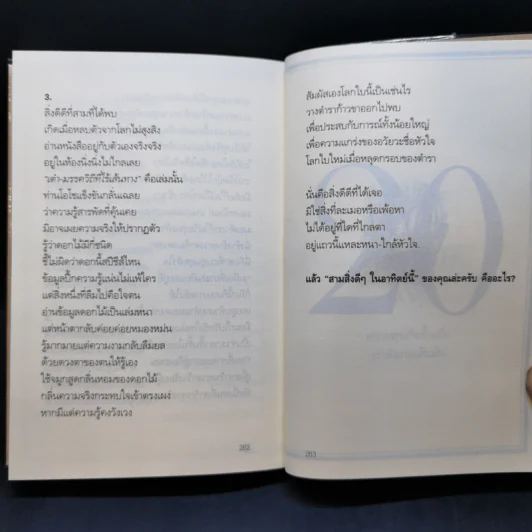 3.
สิ่งดีดีที่สามที่ได้พบ
เกิดเมื่อหลบตัวจากโลกไม่สูงสิง
อ่านหนังสืออยู่กับตัวเองจริงจริง
อยู่ในห้องนิ่งนิ่งไม่ไกลเลย
"เต๋า-มรรควิถีที่ไร้เส้นทาง" คือเล่มนั้น
ท่านโอโชแจ้งชันกลั่นเฉลย
ว่าความรู้สารพัดที่คุ้นเคย
มิอาจเผยความจริงให้ปรากฏตัว
รู้ว่าดอกไม้มีกี่ชนิด
ชี้ไม่ผิดว่าดอกนี้สปีชีส์ไหน
ข้อมูลปึ้กความรู้แน่นไม่แพ้ใคร
แต่สิ่งหนึ่งที่ลืมไปคือใจตน
อ่านข้อมูลดอกไม้เป็นเล่มหนา
แต่หน้าตากลับค่อยค่อยหมองหม่น
รู้มากมายแต่ความงามกลับลืมยล
ด้วยดวงตาของตนให้รู้เอง
ใช้จมูกสูดกลิ่นหอมของดอกไม้
กลิ่นความจริงกระทบใจเข้าตรงเผง
หากมีแต่ความรู้คงวังเวง
262
สัมผัสเองโลกใบนี้เป็นเช่นไร
วางตำราก้าวขาออกไปพบ
เพื่อประสบกับการณ์ทั้งน้อยใหญ่
เพื่อความแกร่งของอวัยวะชื่อหัวใจ
โลกใบใหม่เมื่อหลุดกรอบของตำรา
นั่นคือสิ่งดีดีที่ได้เจอ
มิใช่สิ่งที่ละเมอหรือเพ้อหา
ไม่ได้อยู่ที่ใดที่ไกลตา
อยู่แถวนี้แหละหนา-ใกล้หัวใจ.
แล้ว "สามสิ่งดีๆ ในอาทิตย์นี้" ของคุณล่ะครับ คืออะไร?
20
263